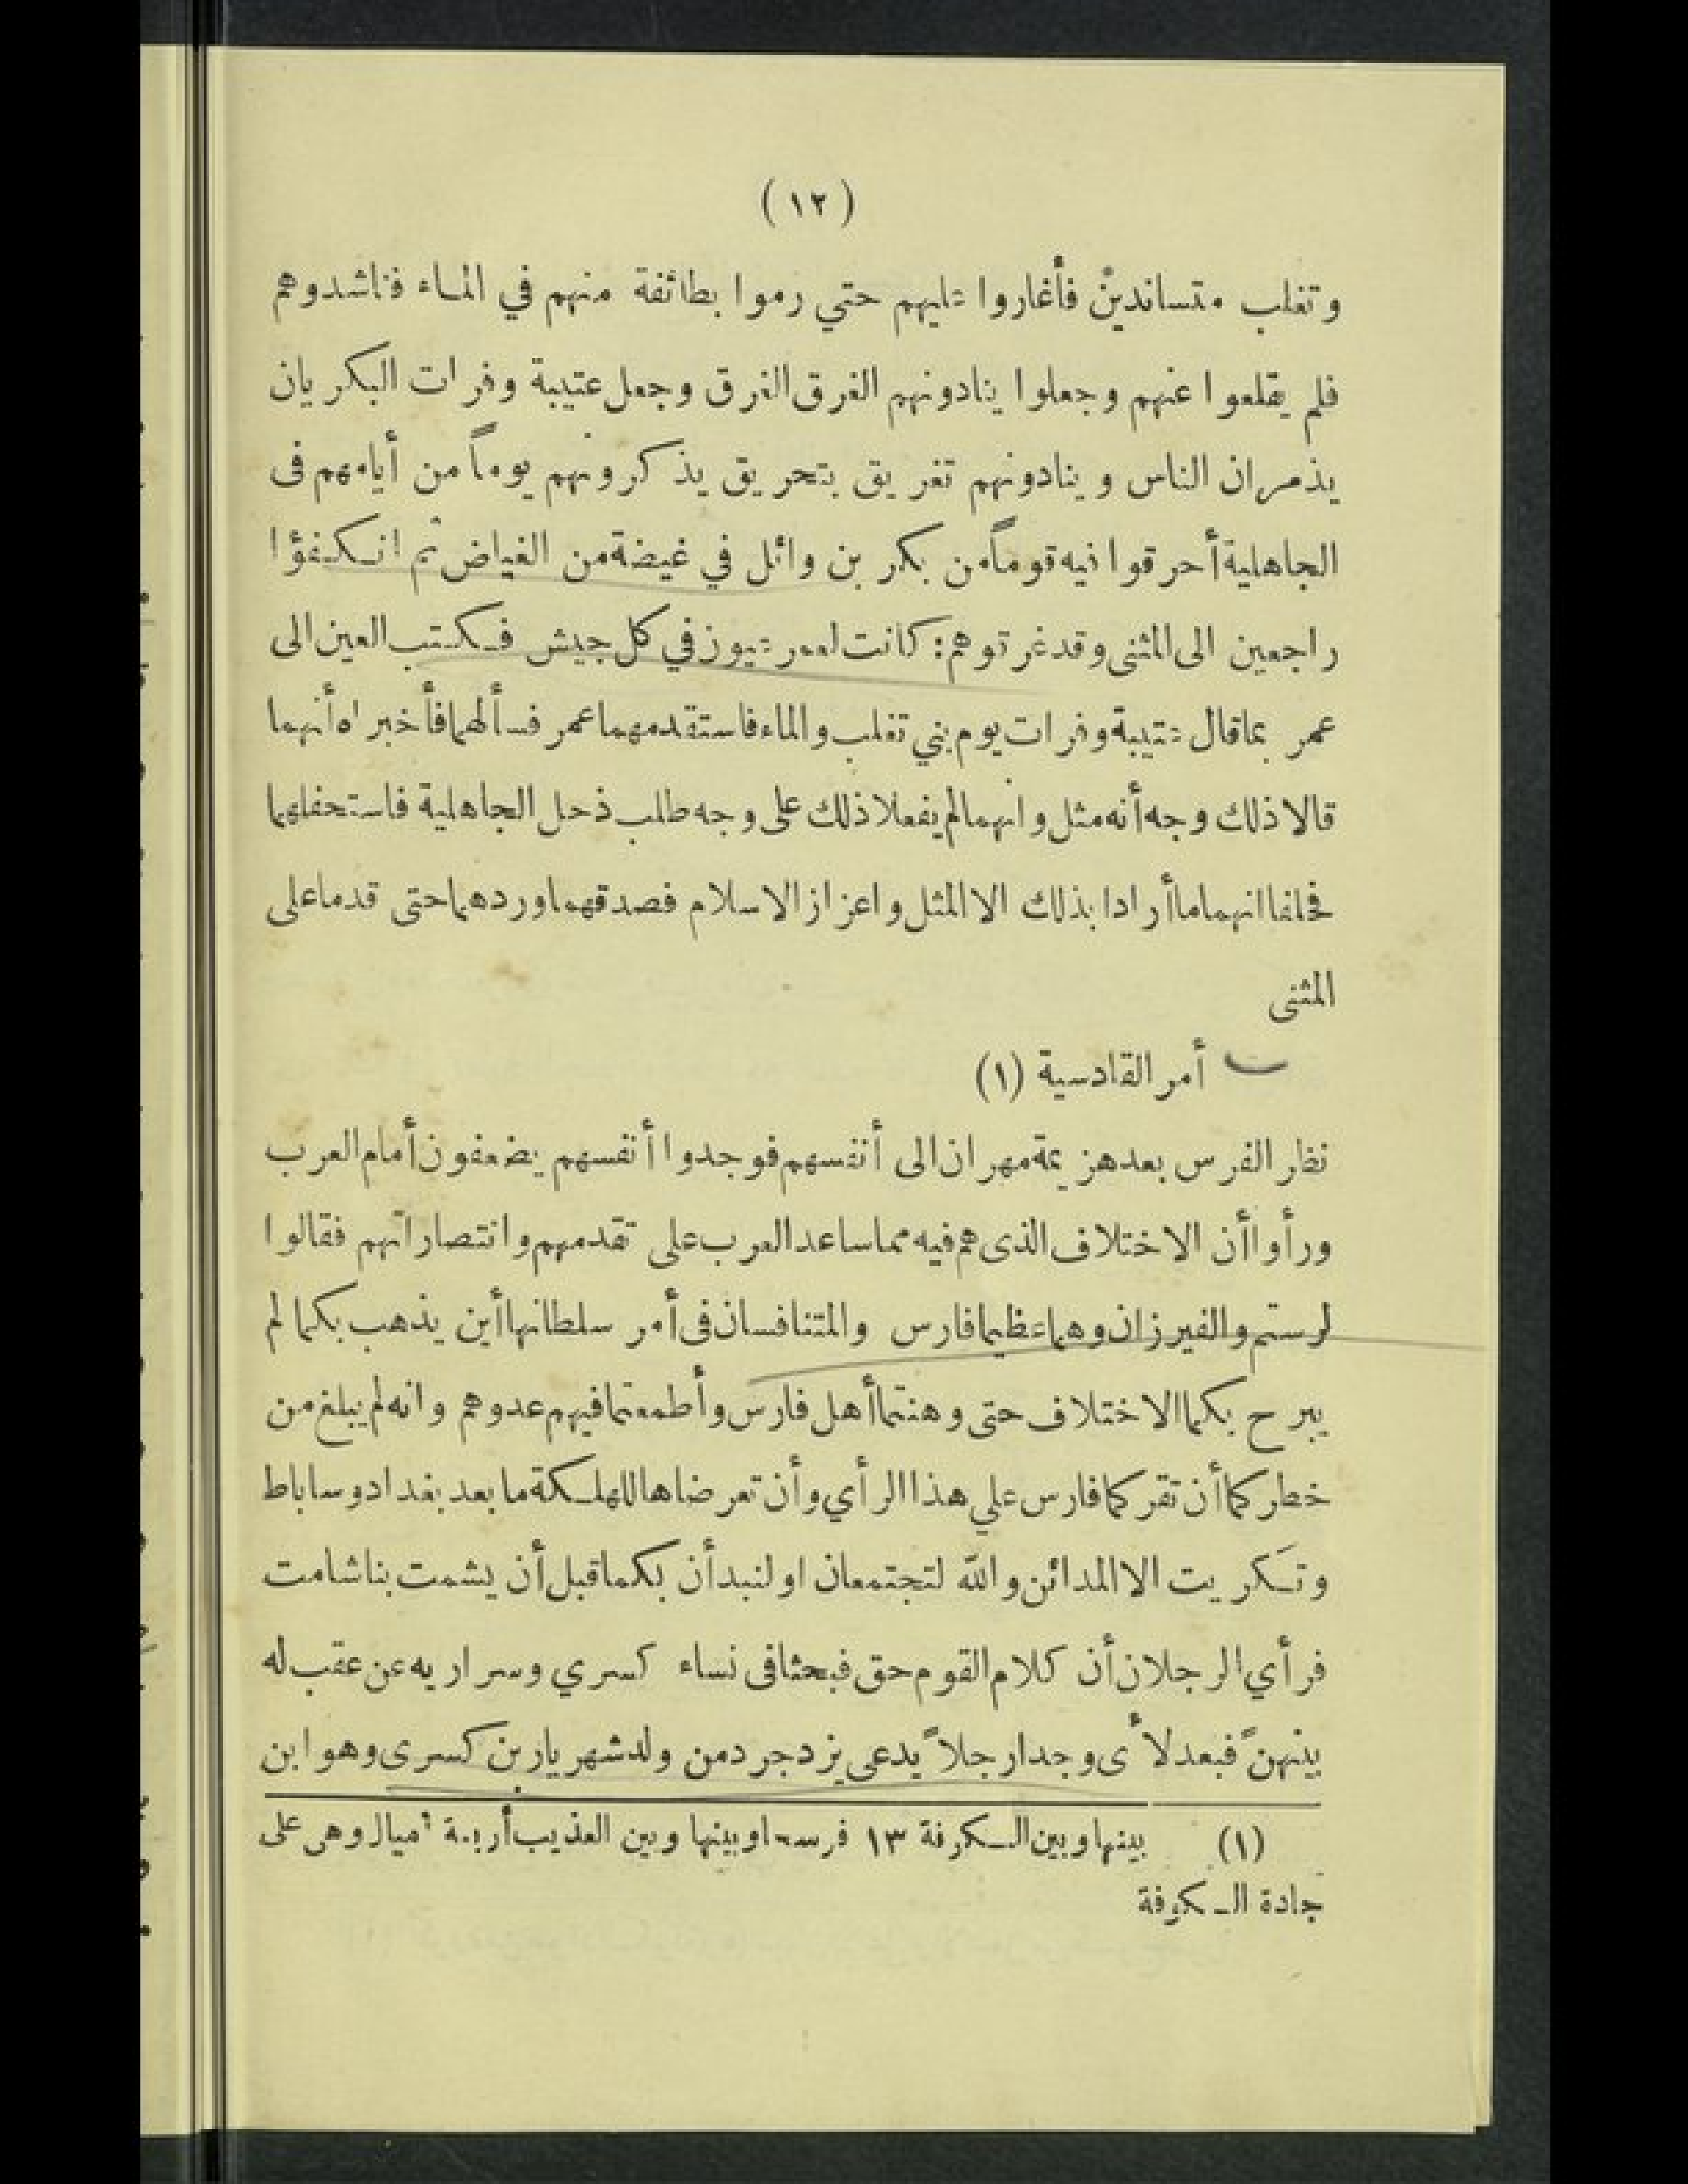 (١٢)
وتغلب متساندين فأغاروا عليهم حتي رموا بطائفة منهم في الماء فناشدوهم
فلم يقلعوا عنهم وجعلوا ينادونهم الغرق الغرق وجعل عتيبة وفرات البكريان
يذمران الناس وينادونهم تغريق بتحريق يذكرونهم يوماً من أيامهم فى
الجاهلية أحرقوا فيه قوماً من بكر بن وائل في غيضة من الغياض ثم انكفؤا
راجعين الى المثنى وقد غرقوهم: كانت لعمر عيون في كل جيش فكتب العين الى
عمر بما قال عتيبة وفرات يوم بني تغلب والماء فاستقدمهما عمر فسألهما فأخبراه أنهما
قالا ذلك وجه أنه مثل وانهما لم يفعلا ذلك على وجه طلب ذحل الجاهلية فاستحلفهما
فحلفا انهما ما أرادا بذلك الا المثل واعزاز الاسلام فصدقهما وردهما حتى قدما على
المثنى
أمر القادسية (١)
نظر الفرس بعد هزيمة مهران الى أنفسهم فوجدوا أنفسهم يضعفون أمام العرب
ورأوا أن الاختلاف الذى هم فيه مما ساعد العرب على تقدمهم وانتصاراتهم فقالوا
لرستم والفيرزان وهما عظيما فارس والمتنافسان فى أمر سلطانها أين يذهب بكما لم
يبرح بكما الاختلاف حتى وهنتما أهل فارس وأطمعتما فيهم عدوهم وانه لم يبلغ من
خطركما أن تقركما فارس علي هذا الرأي وأن تعرضاها للهلكة ما بعد بغداد وساباط
وتكريت الا المدائن والله لتجتمعان او لنبدأن بكما قبل أن يشمت بنا شامت
فرأي الرجلان أن كلام القوم حق فبحثا فى نساء كسري وسراريه عن عقب له
بينهن فبعد لأى وجدا رجلاً يدعى يزدجرد من ولد شهريار بن كسرى وهو ابن
(١) بينها وبين الكوفة ١٣ فرسخا وبينها وبين العذيب أربعة أميال وهى على
جادة الكوفة